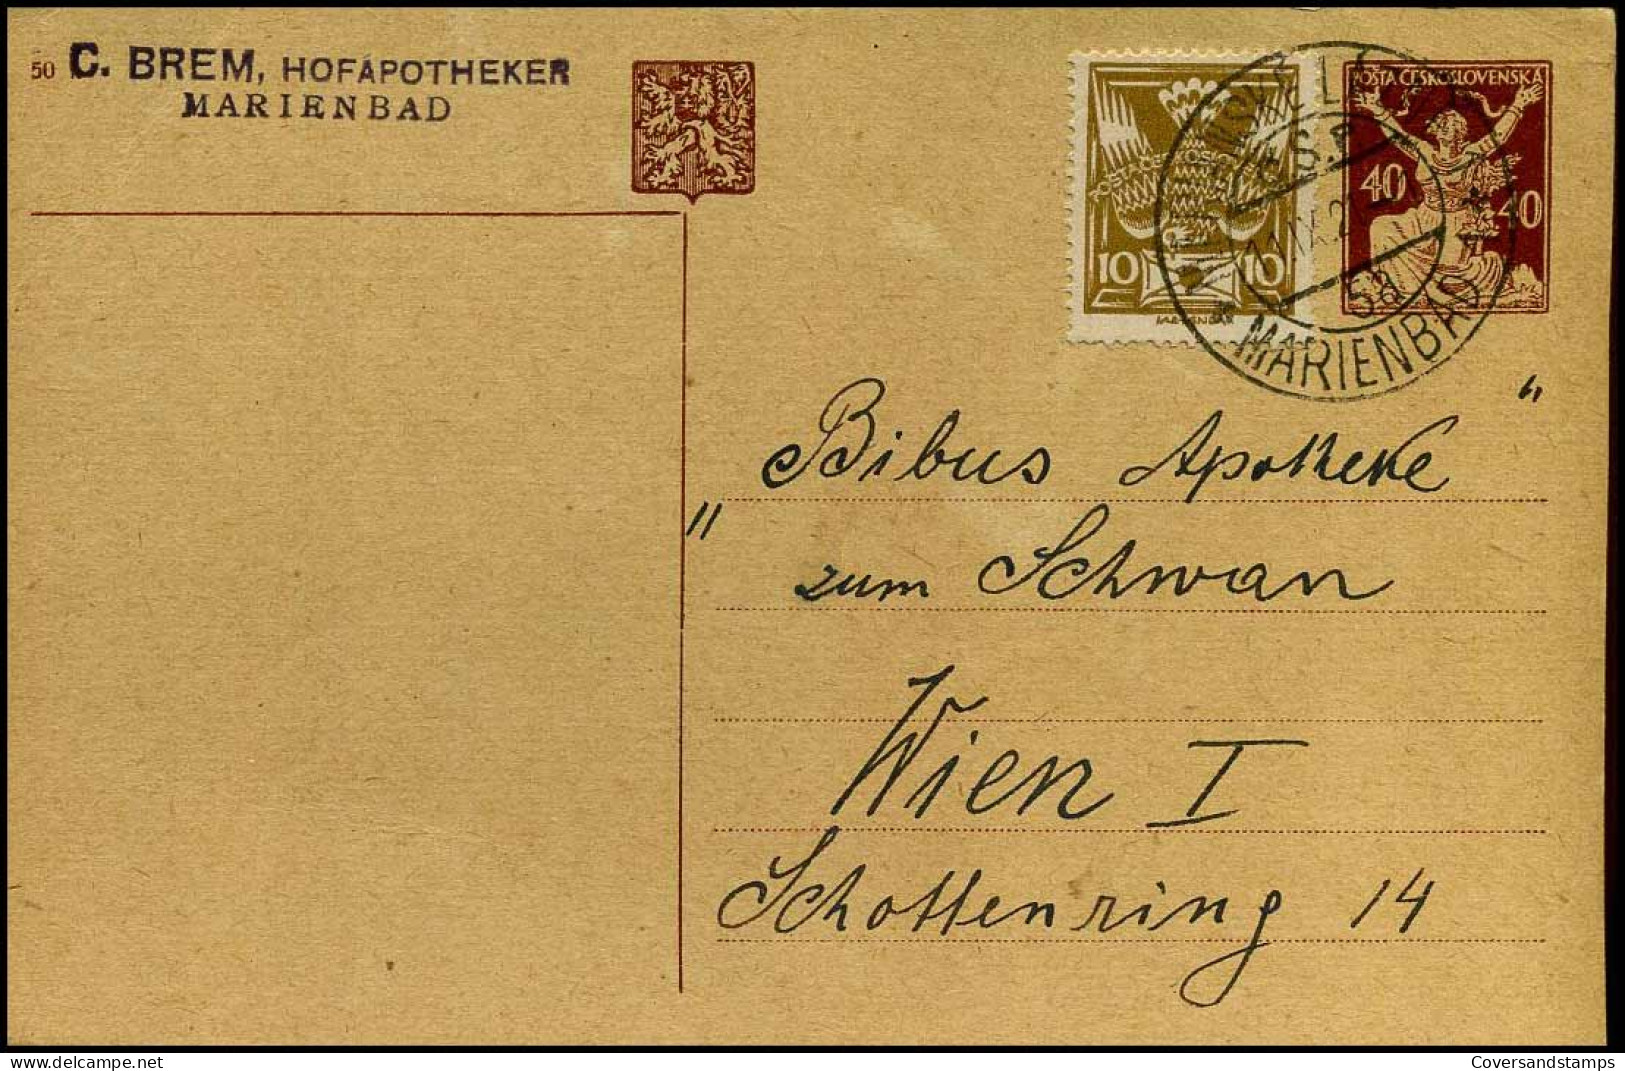 50 C. BREM, HOFAPOTHEKER
MARIENBAD
POŠTA ČESKOSLOVENSKÁ
40 40
10 10
Č.S.P.
5a
MARIENBAD
„Bibus Apotheke"
„zum Schwan
Wien I
Schottenring 14
Coversandstamps